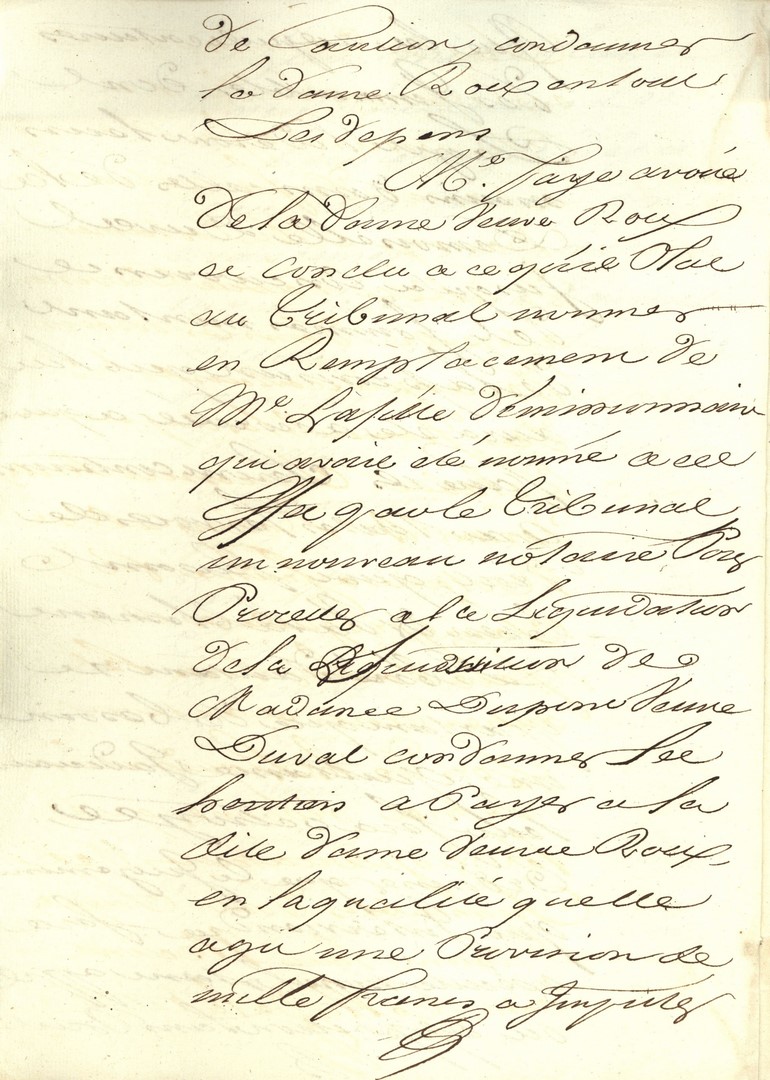 de Caution, condamner
la dame Roux en tous
Les depens
Me. Jaye avoué
De la Dame Veuve Roux
a conclu a ce qu'il Plut
au Tribunal nommer
en Remplacement de
Me. Lafitte démissionnaire
qui avait été nommé a cet
Effet par le Tribunal
un nouveau notaire Pour
Proceder a la Liquidation
de la de
Madame Dupont Veuve
Duval condamner les
heritiers a Payer a la
dite dame Veuve Roux,
en la qualité quelle
agit une Provision de
mille francs a Imputer